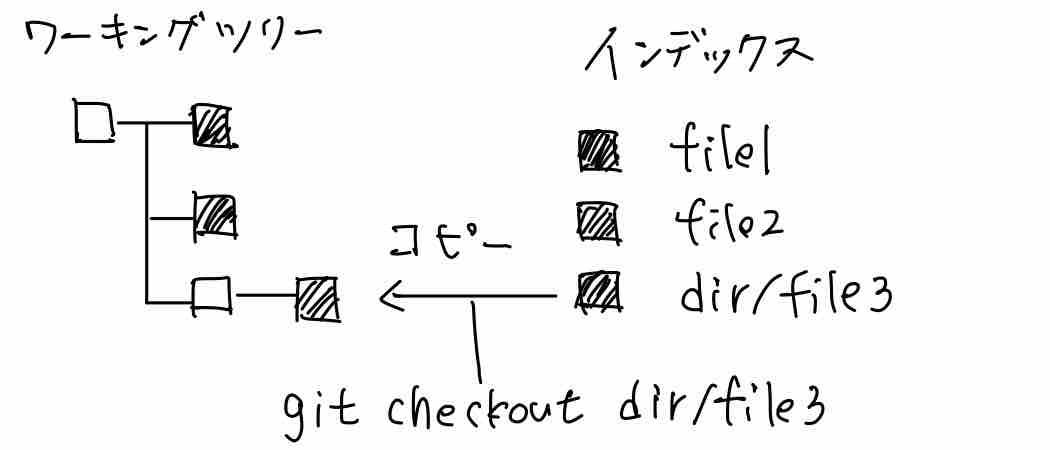 ワーキングツリー
インデックス
file1
file2
コピー
dir/file3
git checkout dir/file3